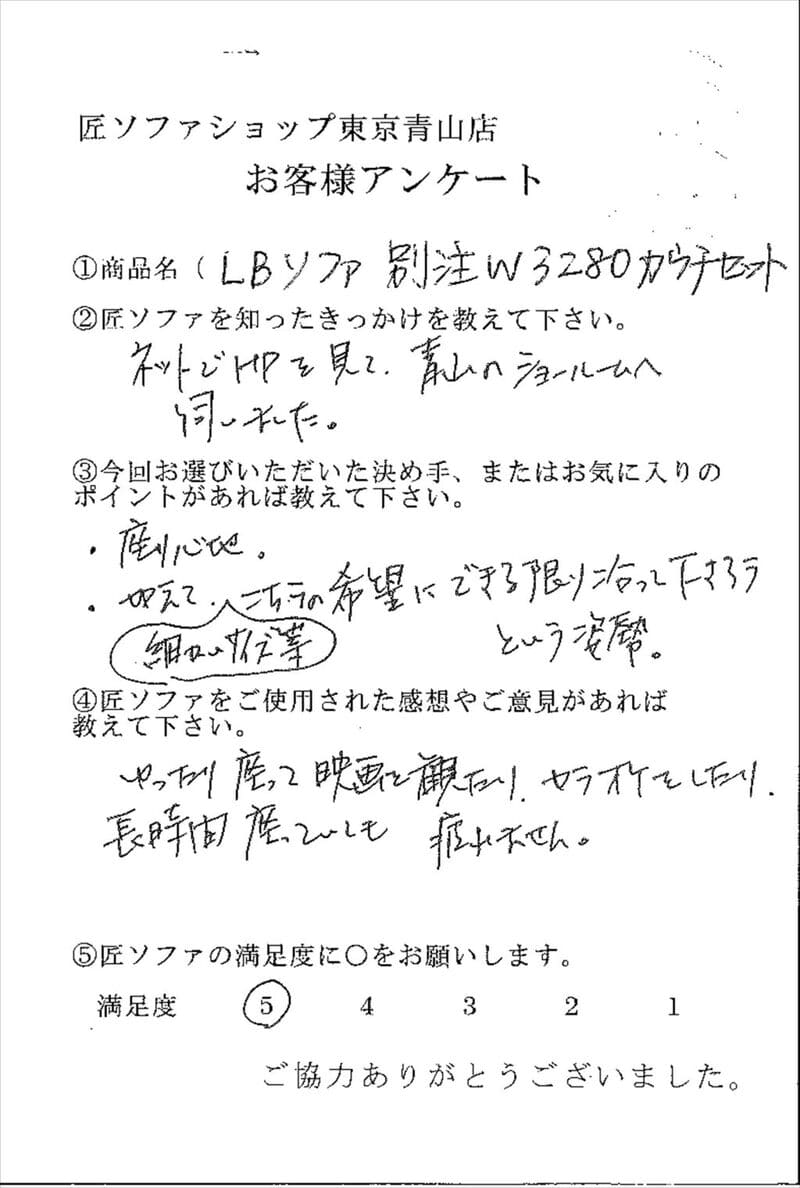 匠ソファショップ東京青山店
お客様アンケート
①商品名（ LBソファ 別注W3280カウチセット
②匠ソファを知ったきっかけを教えて下さい。
ネットでHPを見て、青山のショールームへ
伺いました。
③今回お選びいただいた決め手、またはお気に入りの
ポイントがあれば教えて下さい。
・座り心地。
・加えて、こちらの希望にできる限り沿って下さろう
細かいサイズ等
という姿勢。
④匠ソファをご使用された感想やご意見があれば
教えて下さい。
ゆったり座って映画を観たり、カラオケをしたり、
長時間座っていても 疲れません。
⑤匠ソファの満足度に〇をお願いします。
満足度 5 4 3 2 1
ご協力ありがとうございました。